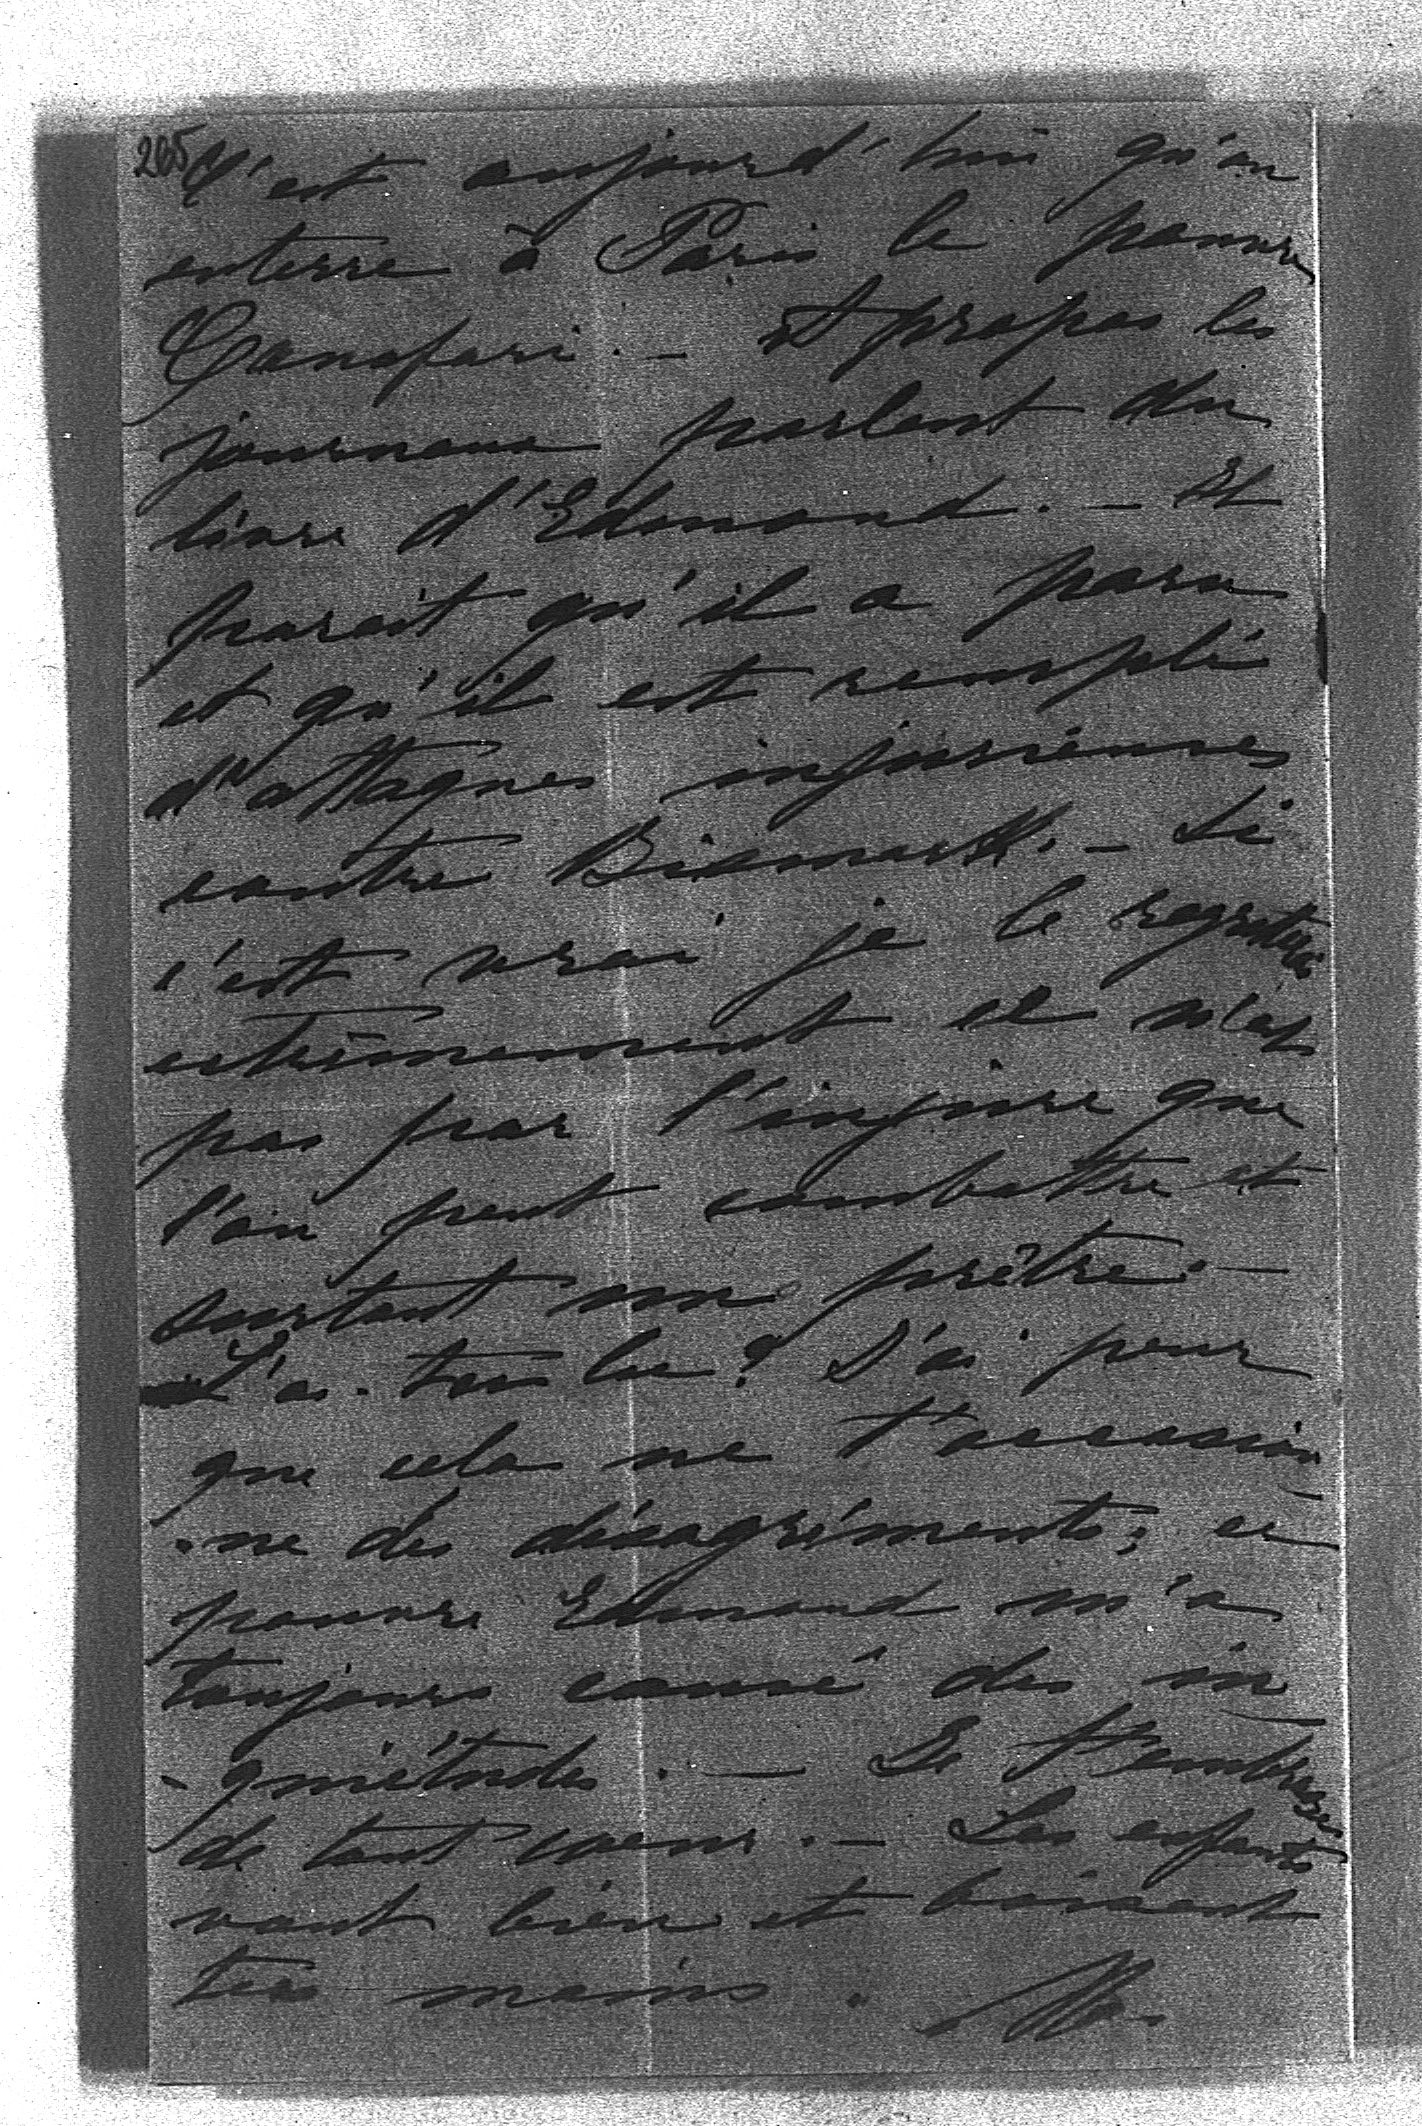 265
C'est aujourd'hui qu'on
enterre à Paris le pauvre
Canofari. — A propos les
journaux parlent du
livre d'Edmond. — Il
parait qu'il a paru
et qu'il est rempli
d'attaques injurieuses
contre Bismark. — Si
c'est vrai je le regrette
extrêmement ce n'est
pas par l'injure que
l'on peut combattre et
surtout un prêtre. —
L'as-tu lu? J'ai peur
que cela ne t'occasion
-ne des désagréments; ce
pauvre Edmond m'a
toujours causé des in
-quiétudes. — Je t'embrasse
de tout coeur. — Les enfants
vont bien et baisent
tes mains. M.